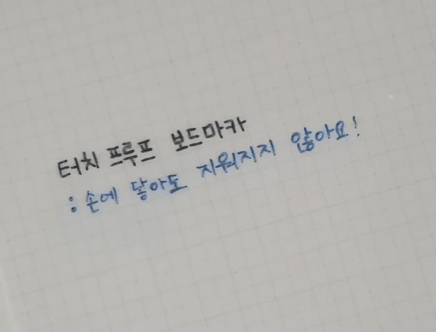 터치 프루프 보드마카
: 손에 닿아도 지워지지 않아요!